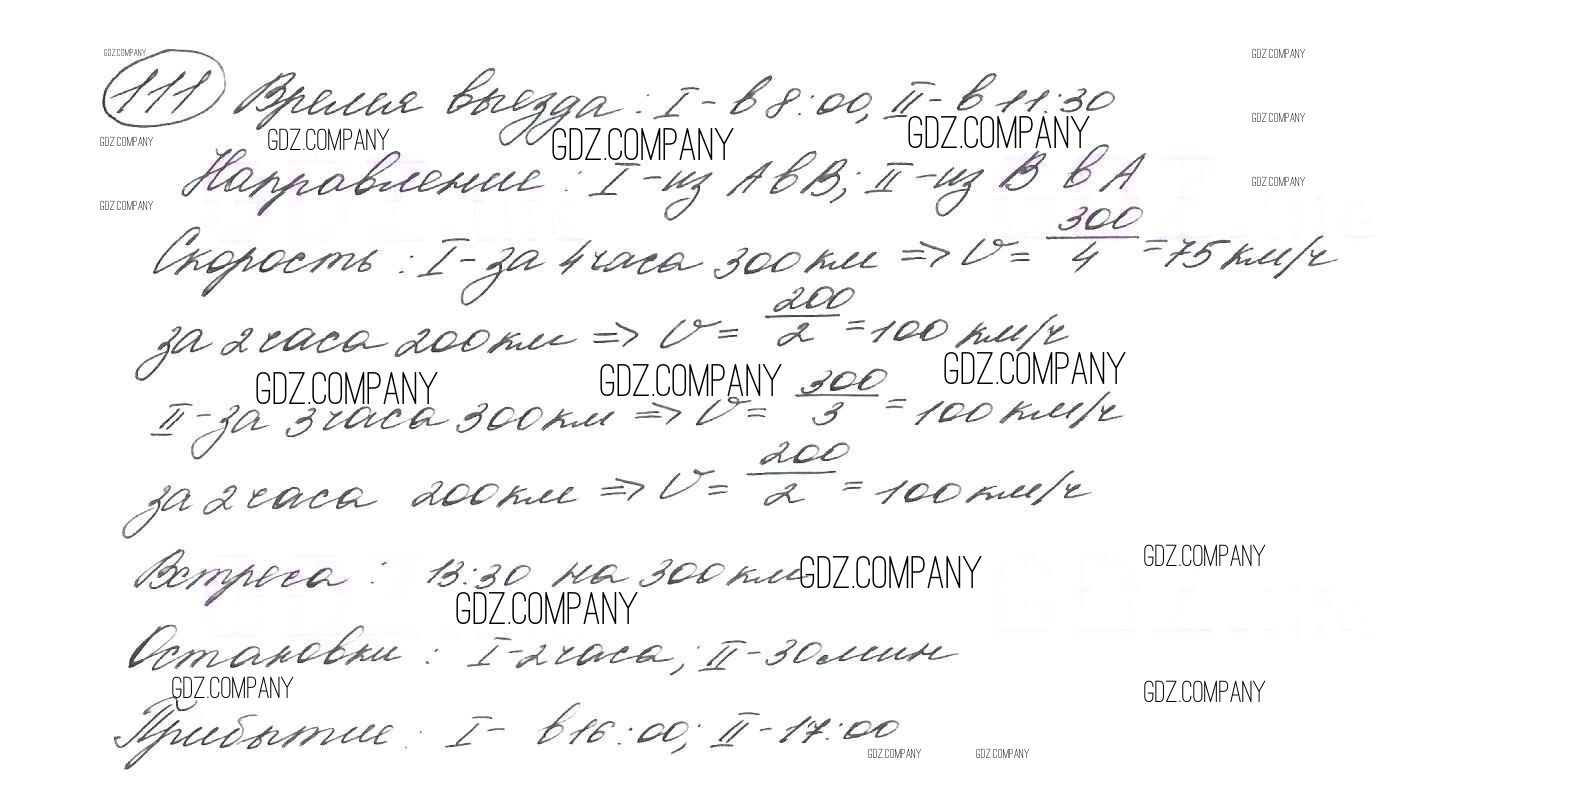 GDZ.COMPANY GDZ.COMPANY
111 Время выезда: I - в 8:00, II - в 11:30
GDZ.COMPANY
GDZ.COMPANY GDZ.COMPANY GDZ.COMPANY GDZ.COMPANY
Направление: I - из A в B; II - из B в A
GDZ.COMPANY
GDZ.COMPANY
Скорость: I - за 4 часа 300 км => V = 300/4 = 75 км/ч
за 2 часа 200 км => V = 200/2 = 100 км/ч
GDZ.COMPANY GDZ.COMPANY GDZ.COMPANY
II - за 3 часа 300 км => V = 300/3 = 100 км/ч
за 2 часа 200 км => V = 200/2 = 100 км/ч
GDZ.COMPANY
Встреча: 13:30 на 300 км GDZ.COMPANY
GDZ.COMPANY
Остановки: I - 2 часа; II - 30 мин
GDZ.COMPANY GDZ.COMPANY
Прибытие: I - в 16:00; II - 17:00
GDZ.COMPANY GDZ.COMPANY